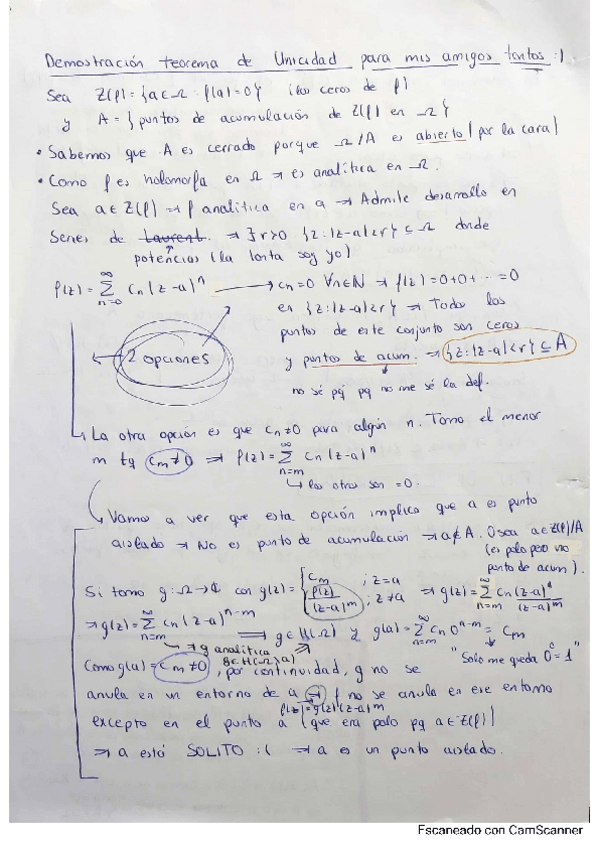 Demostración teorema de Unicidad para mis amigos tontos :).
Sea Z(f) = {a ∈ Ω : f(a) = 0} (los ceros de f)
y A = {puntos de acumulación de Z(f) en Ω}
• Sabemos que A es cerrado porque Ω/A es abierto (por la cara)
• Como f es holomorfa en Ω → es analítica en Ω.
Sea a ∈ Z(f) ⇒ f analítica en a → Admite desarrollo en
series de Laurent. ⇒ ∃ r>0 {z: |z-a|<r} ⊆ Ω donde
potencias (la tonta soy yo)
f(z) = ∑_{n=0}^{∞} cn(z-a)^n → cn = 0 ∀n∈N → f(z) = 0+0+ ··· = 0
en {z: |z-a|<r} → Todos los
puntos de este conjunto son ceros
2 opciones
y puntos de acum. ⇒ {z: |z-a|<r} ⊆ A
no sé pq pq no me sé la def.
La otra opción es que cn ≠ 0 para algún n. Tomo el menor
m tq cm ≠ 0 ⇒ f(z) = ∑_{n=m}^{∞} cn(z-a)^n
↳ los otros son = 0.
Vamos a ver que esta opción implica que a es punto
aislado → No es punto de acumulación → a ∉ A. O sea a ∈ Z(f)/A
(es polo pero no
punto de acum).
Si tomo g: Ω → ℂ con g(z) = { cm ; z=a
f(z)/(z-a)^m ; z≠a ⇒ g(z) = ∑_{n=m}^{∞} cn(z-a)^n/(z-a)^m
⇒ g(z) = ∑_{n=m}^{∞} cn(z-a)^{n-m} ⇒ g ∈ H(Ω) y g(a) = ∑_{n=m}^{∞} cn 0^{n-m} = cm
→ g analítica
g ∈ H(Ω\a)
"Solo me queda 0^0 = 1"
Como g(a) = cm ≠ 0, por continuidad, g no se
anula en un entorno de a ⇒ f no se anula en ese entorno
f(z) = g(z)(z-a)^m
excepto en el punto a (que era polo pq a ∈ Z(f))
⇒ a está SOLITO :( ⇒ a es un punto aislado.
Escaneado con CamScanner